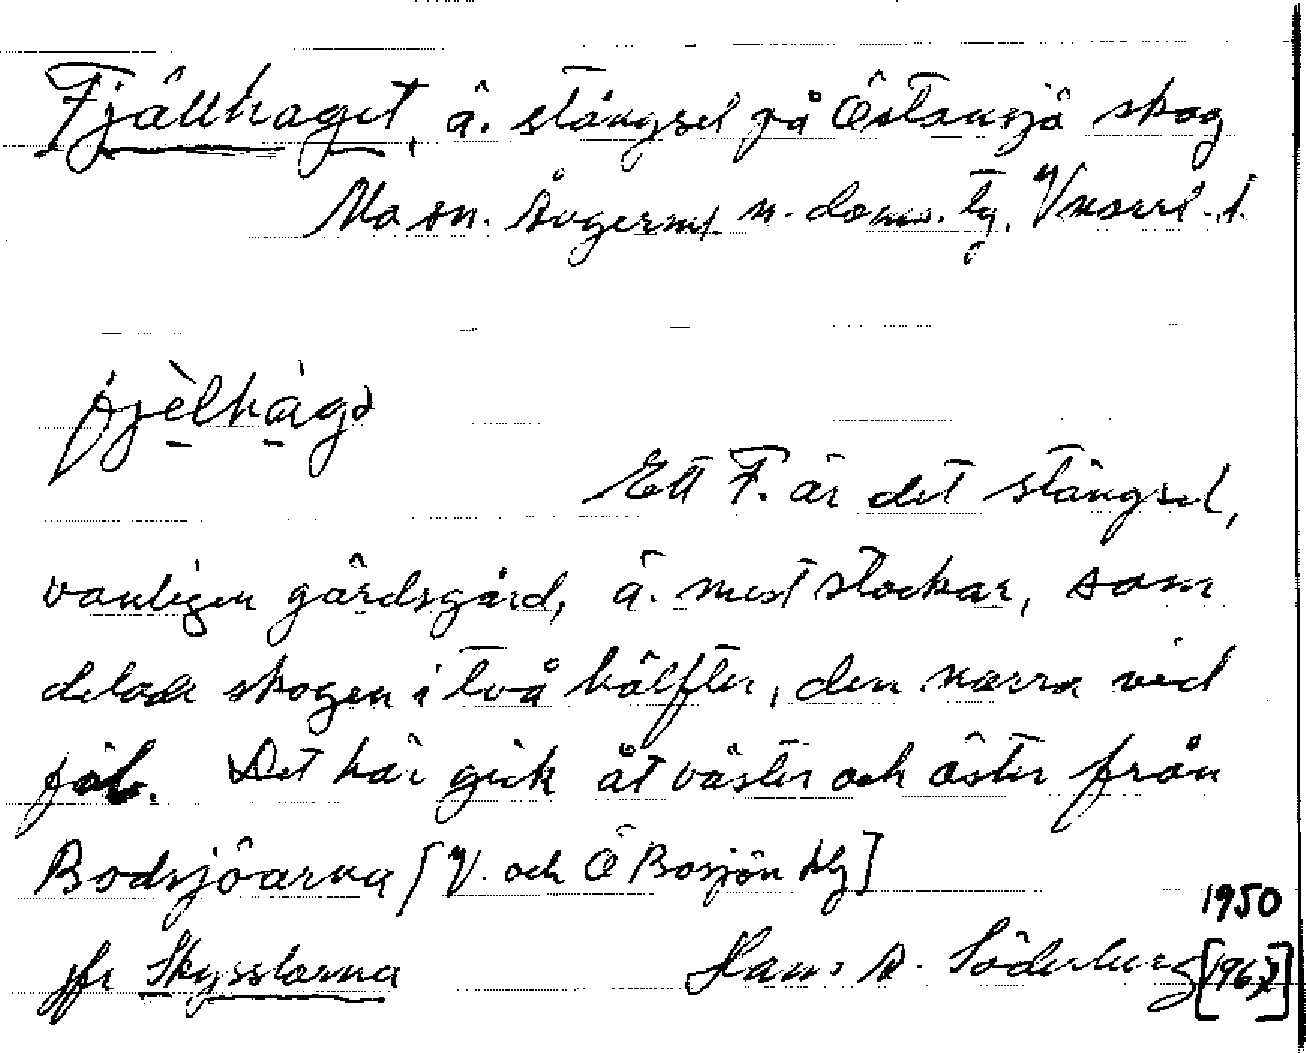 Fjällhaget, ä. stängsel på Östansjö skog
Mo sn. Ångerml n. doms. tg. Vnorrl. l.
fjèlhàgə
Ett F. är det stängsel,
vanligen gärdsgård, ä. mest stockar, som
delade skogen i två hälfter, den norra vid
fäb. Det här gick åt väster och öster från
Bodsjöarna [V. och Ö Bosjön blg]
jfr Skysslorna Hans A. Söderberg
1950